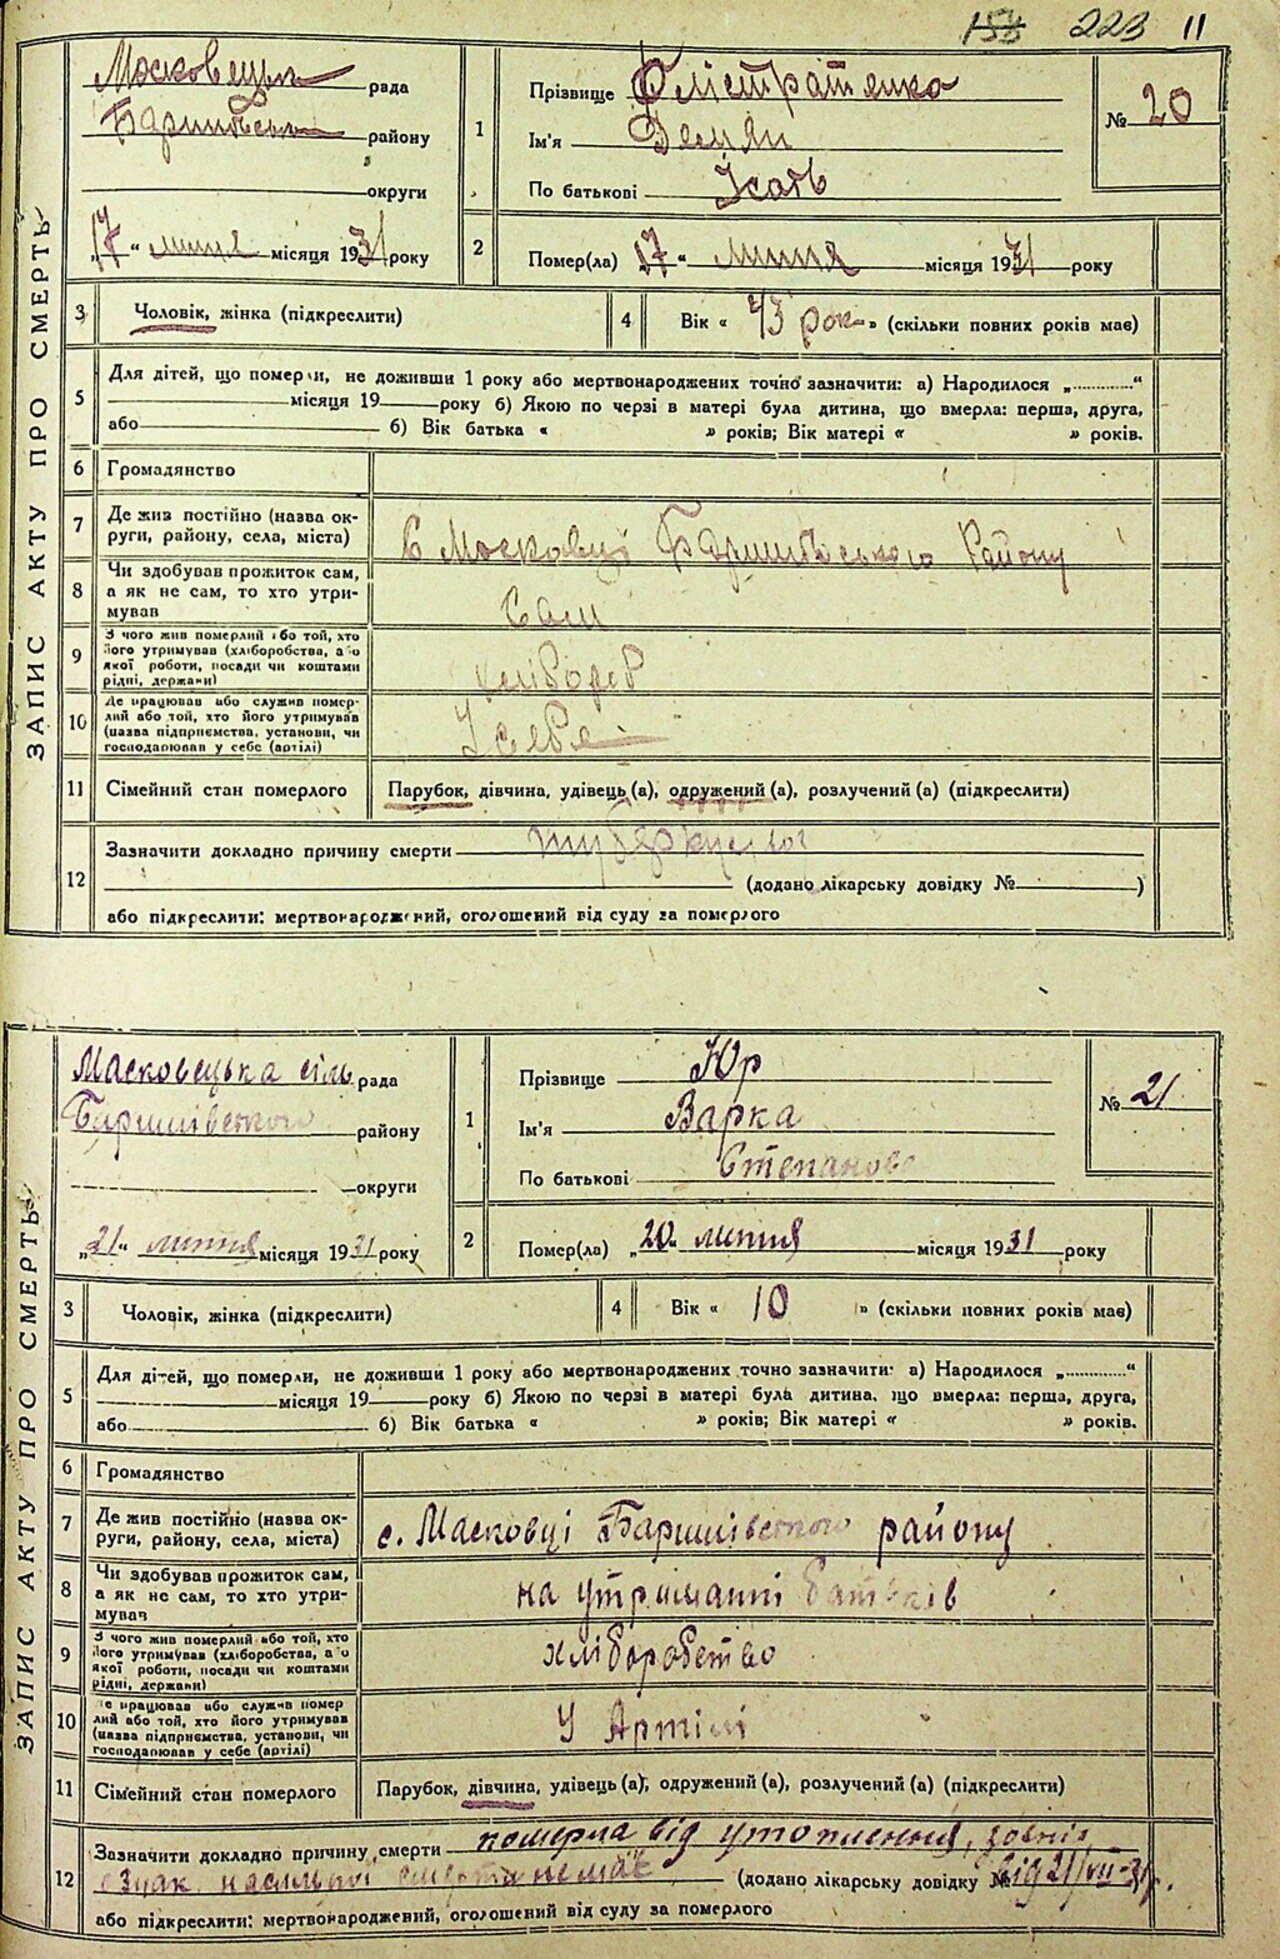 153 223 11
Московецька рада
Баришівськ району
округи
„17“ липця місяця 1931 року
1
Прізвище Єлістратенко
Ім'я Демян
По батькові Ісаїв
№ 20
2
Помер(ла) „17“ липця місяця 1931 року
ЗАПИС АКТУ ПРО СМЕРТЬ
3 Чоловік, жінка (підкреслити)
4 Вік « 43 рок » (скільки повних років має)
5 Для дітей, що померли, не доживши 1 року або мертвонароджених точно зазначити: а) Народилося „............“
місяця 19 року б) Якою по черзі в матері була дитина, що вмерла: перша, друга,
або б) Вік батька « » років; Вік матері « » років.
6 Громадянство
7 Де жив постійно (назва ок-
руги, району, села, міста)
С Московці Баришівського Району
8 Чи здобував прожиток сам,
а як не сам, то хто утри-
мував
Сам
9 З чого жив померлий або той, хто
його утримував (хліборобства, або
якої роботи, посади чи коштами
рідні, держави)
хлібороб
10 Де працював або служив помер-
лий або той, хто його утримував
(назва підприємства, установи, чи
господарював у себе (артілі)
У себе
11 Сімейний стан померлого
Парубок, дівчина, удівець (а), одружений (а), розлучений (а) (підкреслити)
12 Зазначити докладно причину смерти туберкульоз
(додано лікарську довідку № )
або підкреслити: мертвонароджений, оголошений від суду за померлого
Масковецька сіль рада
Баришівського району
округи
„21“ липня місяця 1931 року
1
Прізвище Юр
Ім'я Варка
По батькові Степанова
№ 21
2
Помер(ла) „20“ липня місяця 1931 року
ЗАПИС АКТУ ПРО СМЕРТЬ
3 Чоловік, жінка (підкреслити)
4 Вік « 10 » (скільки повних років має)
5 Для дітей, що померли, не доживши 1 року або мертвонароджених точно зазначити: а) Народилося „............“
місяця 19 року б) Якою по черзі в матері була дитина, що вмерла: перша, друга,
або б) Вік батька « » років; Вік матері « » років.
6 Громадянство
7 Де жив постійно (назва ок-
руги, району, села, міста)
с. Масковці Баришівського району
8 Чи здобував прожиток сам,
а як не сам, то хто утри-
мував
на утриманні батьків
9 З чого жив померлий або той, хто
його утримував (хліборобства, або
якої роботи, посади чи коштами
рідні, держави)
хліборобство
10 Де працював або служив помер
лий або той, хто його утримував
(назва підприємства, установи, чи
господарював у себе (артілі)
У Артілі
11 Сімейний стан померлого
Парубок, дівчина, удівець (а), одружений (а), розлучений (а) (підкреслити)
12 Зазначити докладно причину смерти померла від утоплення, зовніш
ознак насильної смерти немає (додано лікарську довідку № від 21/VII-31р.
або підкреслити: мертвонароджений, оголошений від суду за померлого